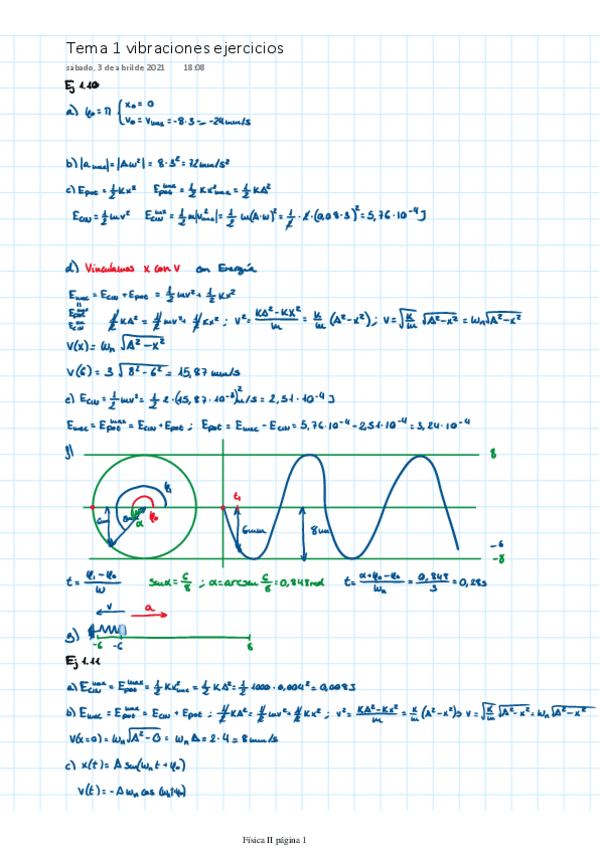 Tema 1 vibraciones ejercicios
sábado, 3 de abril de 2021 18:08
Ej 1.10
a) φ₀ = π { x₀ = 0
v₀ = vmax = -8·3 = -24 mm/s
b) |amax| = |Aω²| = 8·3² = 72 mm/s²
c) Epot = ½Kx² Epot^max = ½Kx²max = ½KA²
Ecin = ½mv² Ecin^max = ½m|v²max| = ½m(A·ω)² = ½·2·(0,08·3)² = 5,76·10⁻⁴ J
d) Vinculamos x con v con Energía
Emec = Ecin + Epot = ½mv² + ½Kx²
Epot^max
Ecin^max ½KA² = ½mv² + ½Kx² ; v² = (KA²-Kx²)/m = K/m (A²-x²) ; v = √(K/m) √(A²-x²) = ωn√(A²-x²)
v(x) = ωn √(A²-x²)
v(6) = 3 √(8²-6²) = 15,87 mm/s
e) Ecin = ½mv² = ½ 2·(15,87·10⁻³)² m/s = 2,51·10⁻⁴ J
Emec = Epot^max = Ecin + Epot ; Epot = Emec - Ecin = 5,76·10⁻⁴ - 2,51·10⁻⁴ = 3,24·10⁻⁴
f) 8
φ₁ t₁
φ₀ α 6mm 8mm
-6
-8
t = (φ₁-φ₀)/ω senα = 6/8 ; α = arcsen 6/8 = 0,848 rad t = (α+φ₀-φ₀)/ωn = 0,848/3 = 0,28s
v a
g)
-6 -6 6
Ej 1.11
a) Ecin^max = Epot^max = ½Kx²max = ½KA² = ½ 1000·0,004² = 0,008J
b) Emec = Epot^max = Ecin + Epot ; ½KA² = ½mv² + ½Kx² ; v² = (KA²-Kx²)/m = K/m (A²-x²) ⇒ v = √(K/m) √(A²-x²) = ωn √(A²-x²)
v(x=0) = ωn√(A²-0) = ωn A = 2·4 = 8mm/s
c) x(t) = A sen(ωn t + φ₀)
v(t) = -A ωn cos (ωn t+φ₀)
Física II página 1